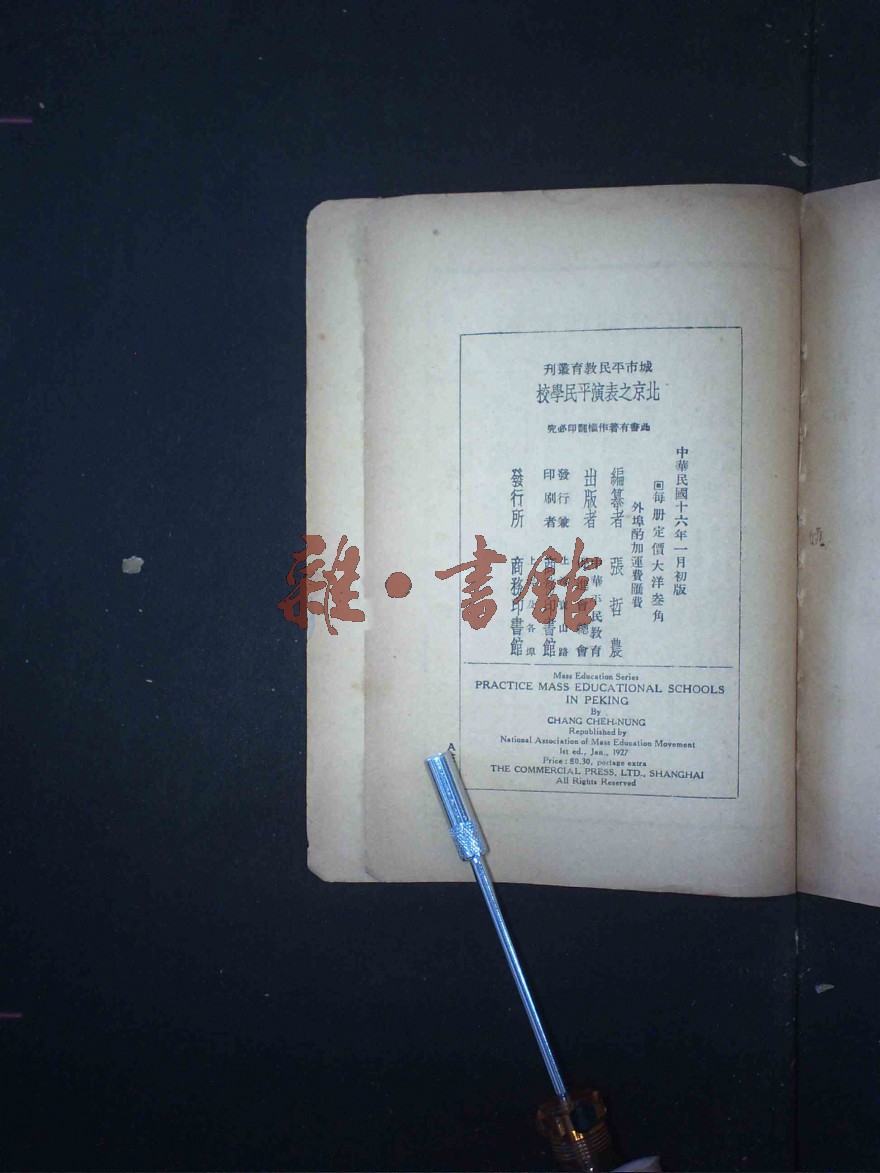 城市平民教育叢刊
北京之表演平民學校
此書有著作權翻印必究
中華民國十六年一月初版
每册定價大洋叁角
外埠酌加運費匯費
編纂者 張哲農
出版者 中華平民教育
會
發行兼
印刷者
山路
商 印書館
發行所
上 及各埠
商務印書館
Mass Education Series
PRACTICE MASS EDUCATIONAL SCHOOLS
IN PEKING
By
CHANG CHEH-NUNG
Republished by
National Association of Mass Education Movement
1st ed., Jan., 1927
Price: $0.30, postage extra
THE COMMERCIAL PRESS, LTD., SHANGHAI
All Rights Reserved
A
雜·書館